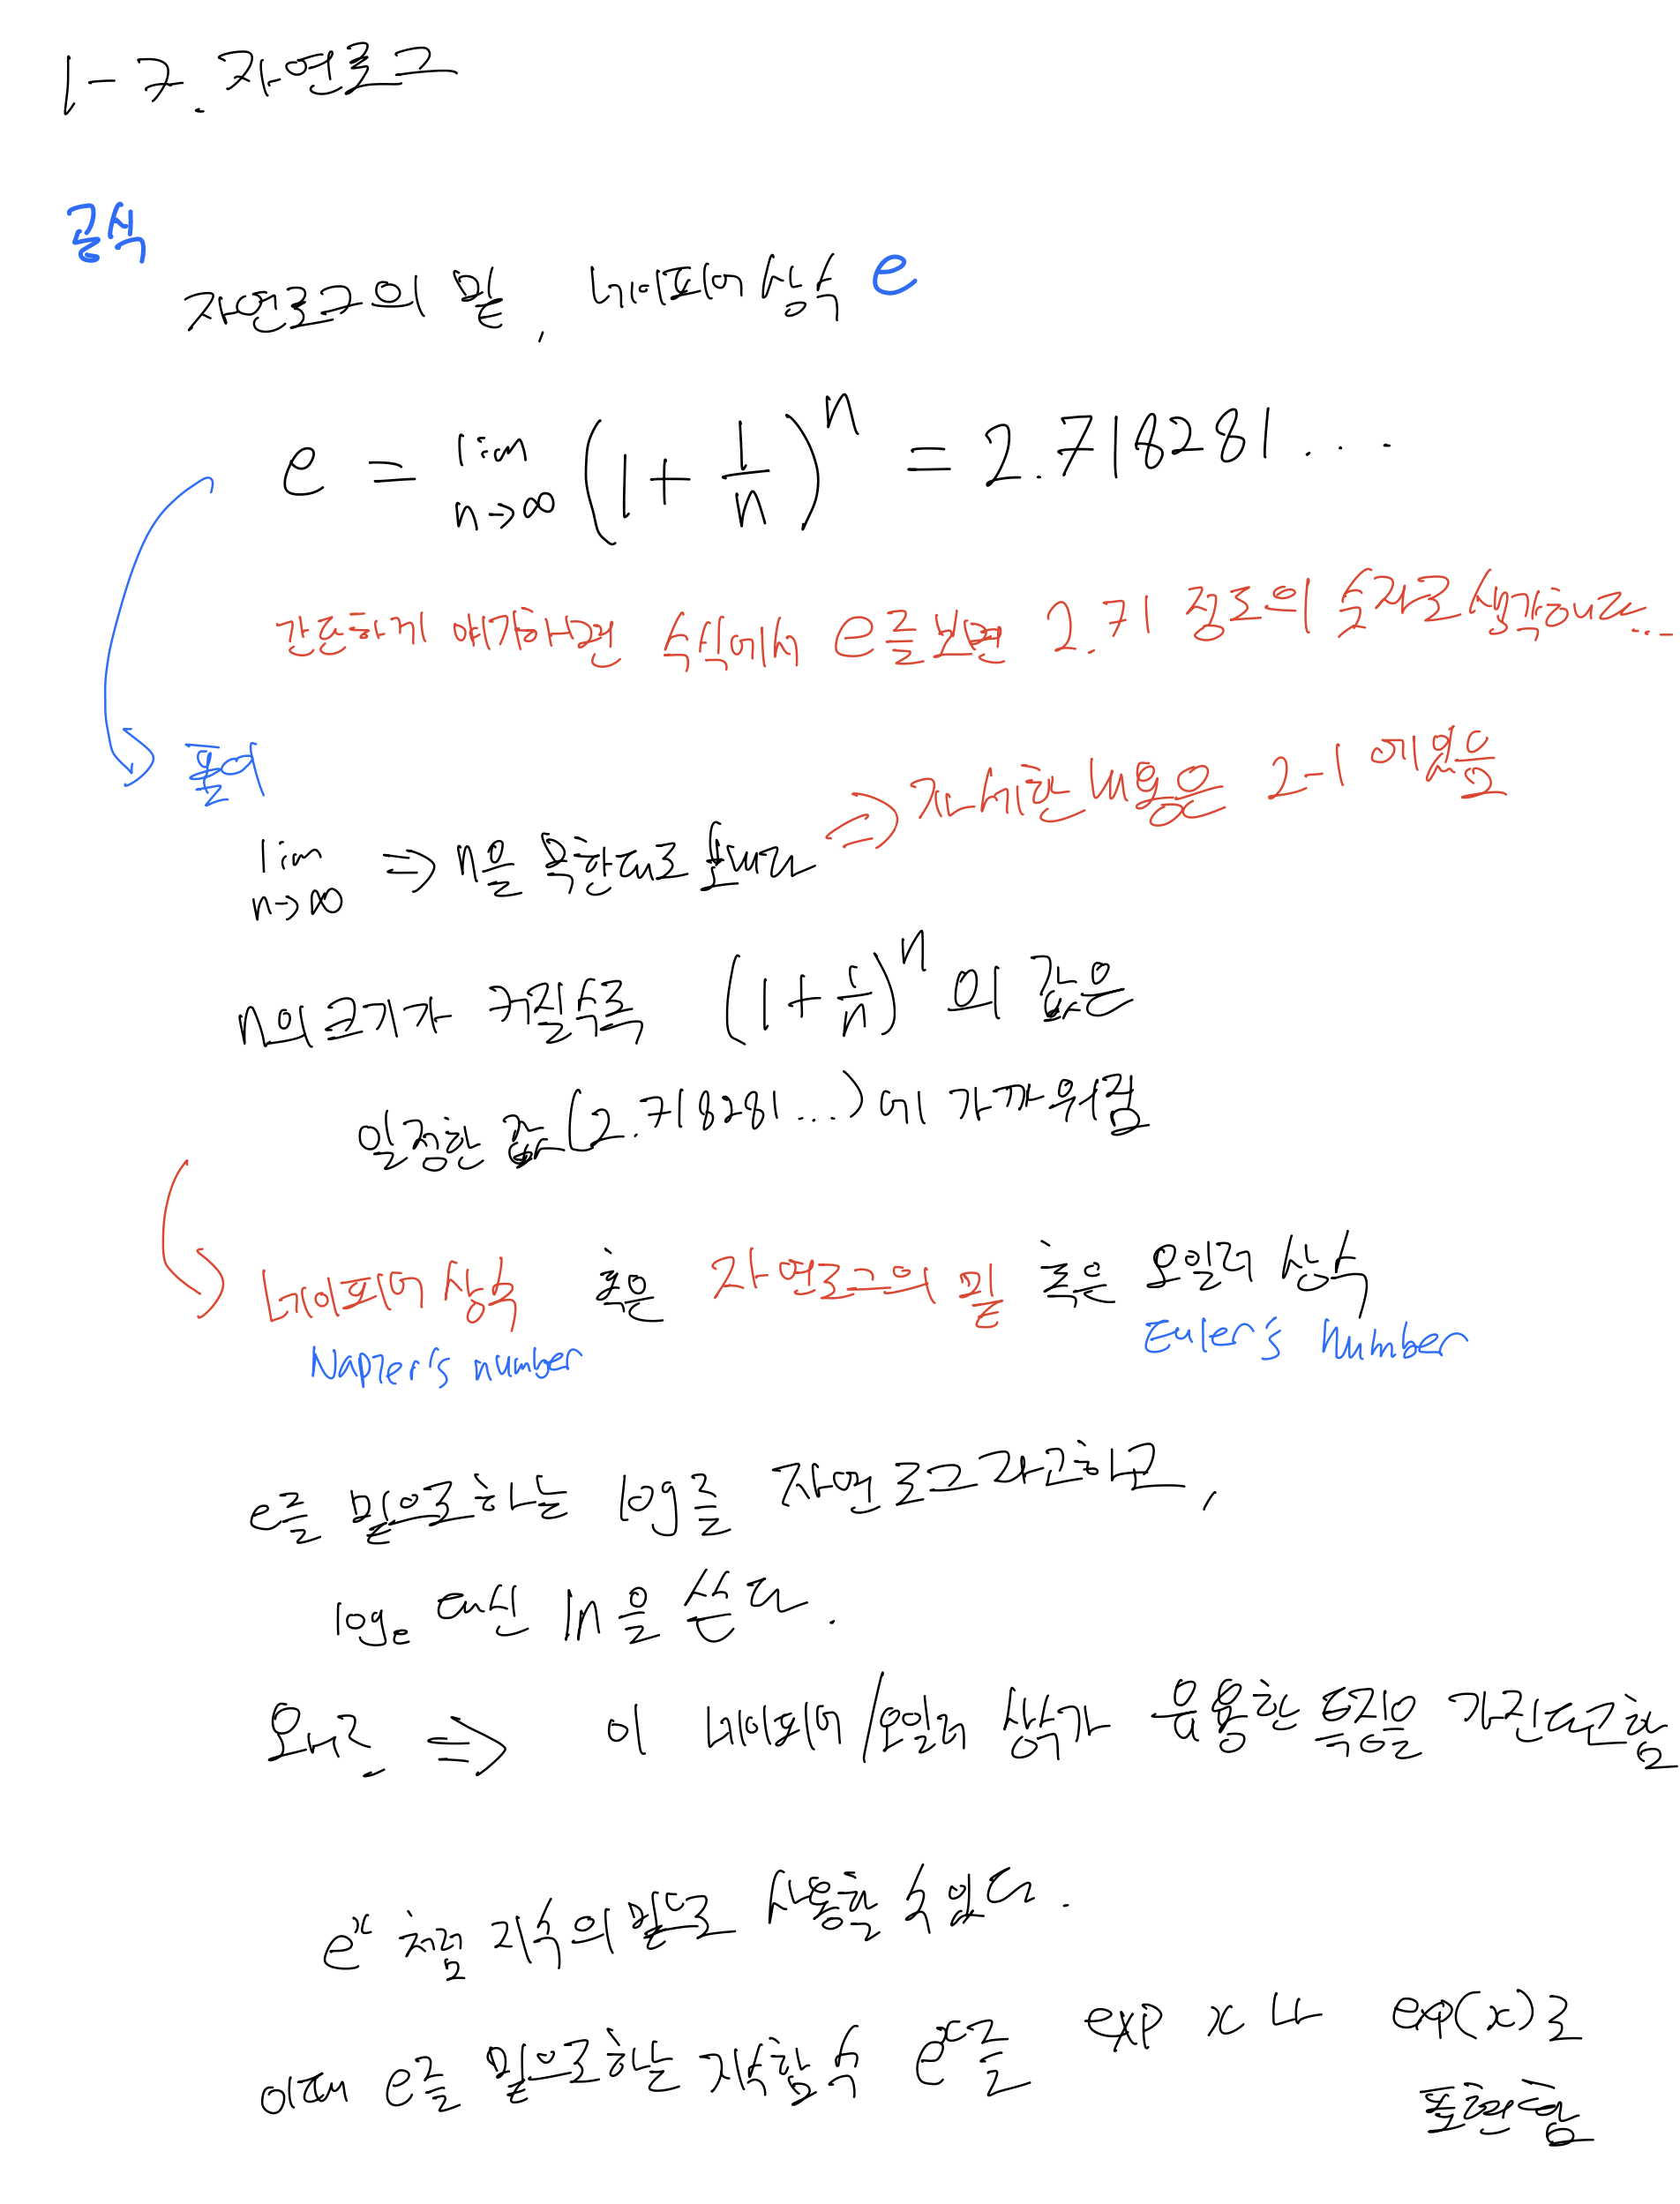 1-7. 자연로그
공식
자연로그의 밑, 네이피어 상수 e
e = lim n→∞ (1 + 1/n)^n = 2.718281...
간단하게 얘기하면 수식에서 e를 보면 2.71 정도의 숫자로 생각합니다...
풀이
lim n→∞ ⇒ n을 무한대로 보내다 ⇒ 자세한 내용은 2-1 에 있음
n의 크기가 커질수록 (1 + 1/n)^n 의 값은
일정한 값(2.718281...)에 가까워짐
네이피어 상수 혹은 자연로그의 밑 혹은 오일러 상수
Napier's number Euler's number
e를 밑으로 하는 log를 자연로그라고 하고,
log_e 대신 ln을 쓴다.
왜냐? ⇒ 이 네이피어/오일러 상수가 유용한 특징을 가진다고 함
e^x 처럼 지수의 밑으로 사용할 수 있다.
이때 e를 밑으로 한 지수함수 e^x를 exp x 나 exp(x)로
표현함